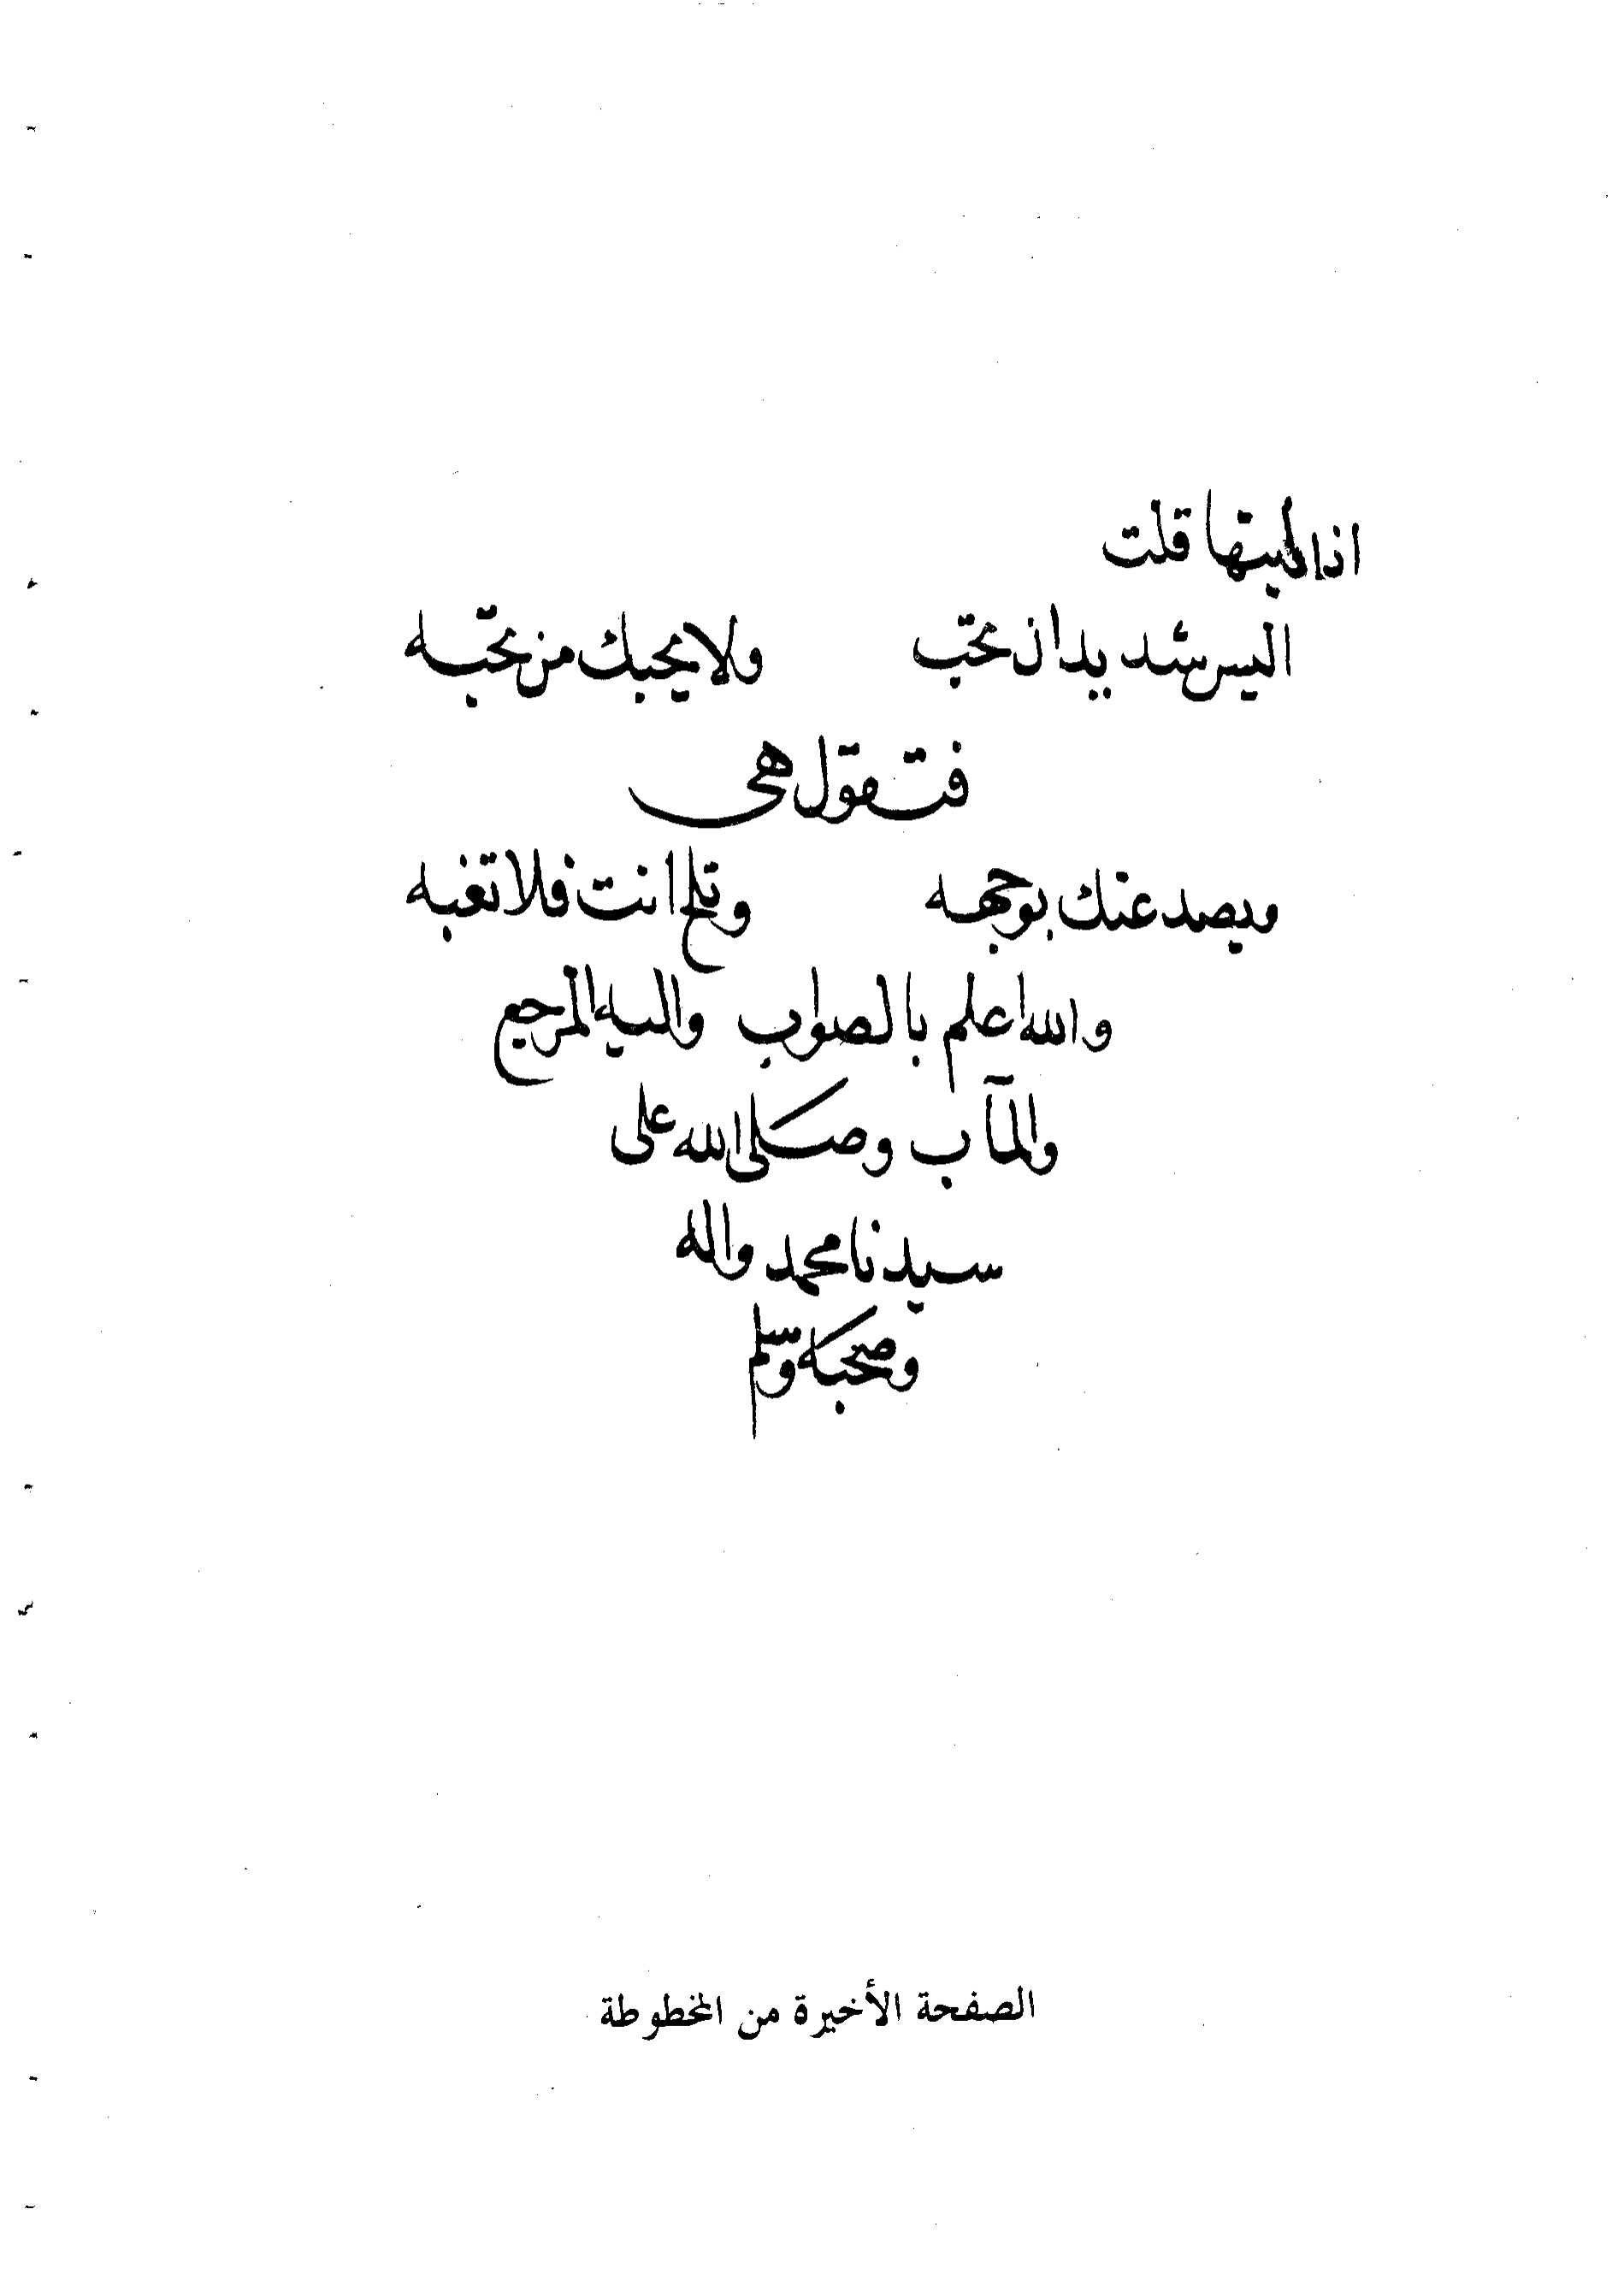 اذا لقيتها قلت
اليس شديدا ان تحب ولا يحبك من تحبه
فتقول هى
ويصد عنك بوجهه وتلح انت فلا تغبه
والله اعلم بالصواب واليه المرجع
والمآب وصلى الله على
سيدنا محمد واله
وصحبه وسلم
الصفحة الأخيرة من المخطوطة